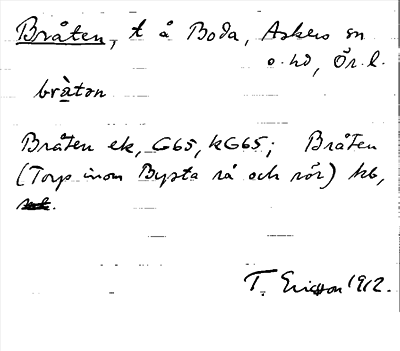 Bråten, t å Boda, Askers sn
o. hd, Ör. l.
bràton
Bråten ek, G65, kG65; Bråten
(Torp inom Bysta rå och rör) kb,
T. Ericsson 1912.